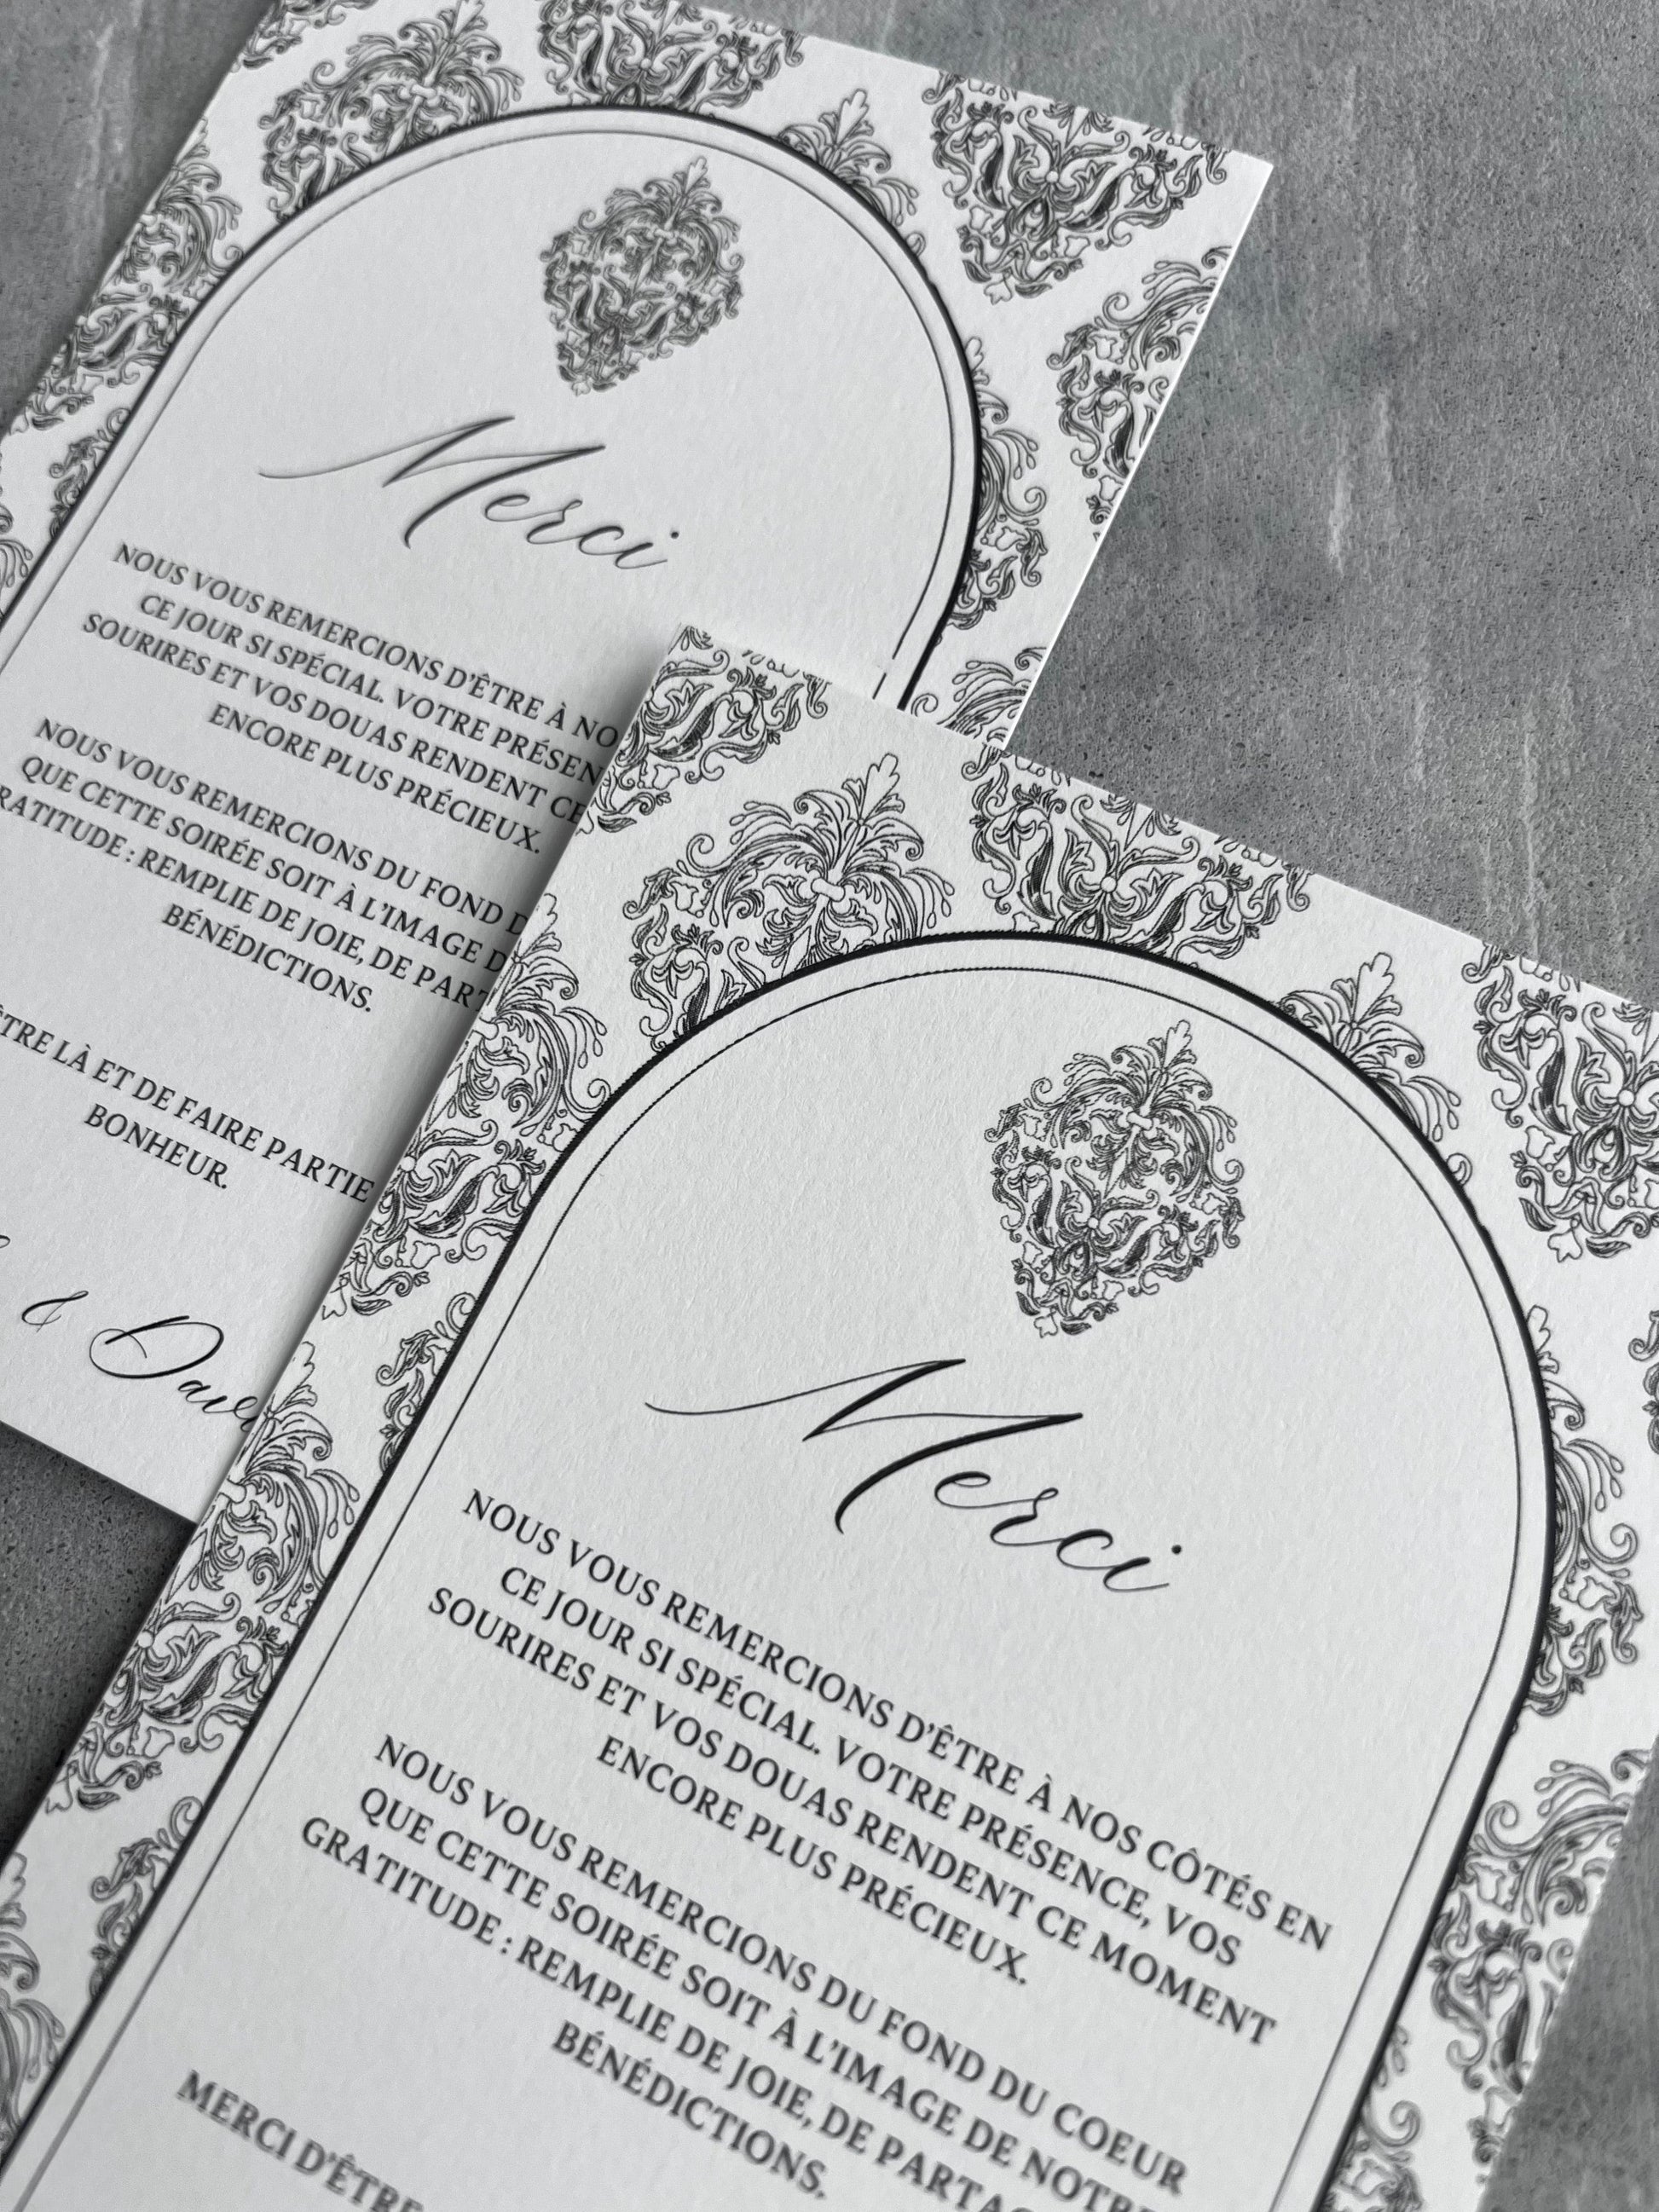 Merci
NOUS VOUS REMERCIONS D'ÊTRE À NO
CE JOUR SI SPÉCIAL. VOTRE PRÉSEN
SOURIRES ET VOS DOUAS RENDENT CE
ENCORE PLUS PRÉCIEUX.
NOUS VOUS REMERCIONS DU FOND D
QUE CETTE SOIRÉE SOIT À L'IMAGE D
RATITUDE : REMPLIE DE JOIE, DE PART
BÉNÉDICTIONS.
ÊTRE LÀ ET DE FAIRE PARTIE
BONHEUR.
& Dav
Merci
NOUS VOUS REMERCIONS D'ÊTRE À NOS CÔTÉS EN
CE JOUR SI SPÉCIAL. VOTRE PRÉSENCE, VOS
SOURIRES ET VOS DOUAS RENDENT CE MOMENT
ENCORE PLUS PRÉCIEUX.
NOUS VOUS REMERCIONS DU FOND DU COEUR
QUE CETTE SOIRÉE SOIT À L'IMAGE DE NOTRE
GRATITUDE : REMPLIE DE JOIE, DE PARTAG
BÉNÉDICTIONS.
MERCI D'ÊTRE